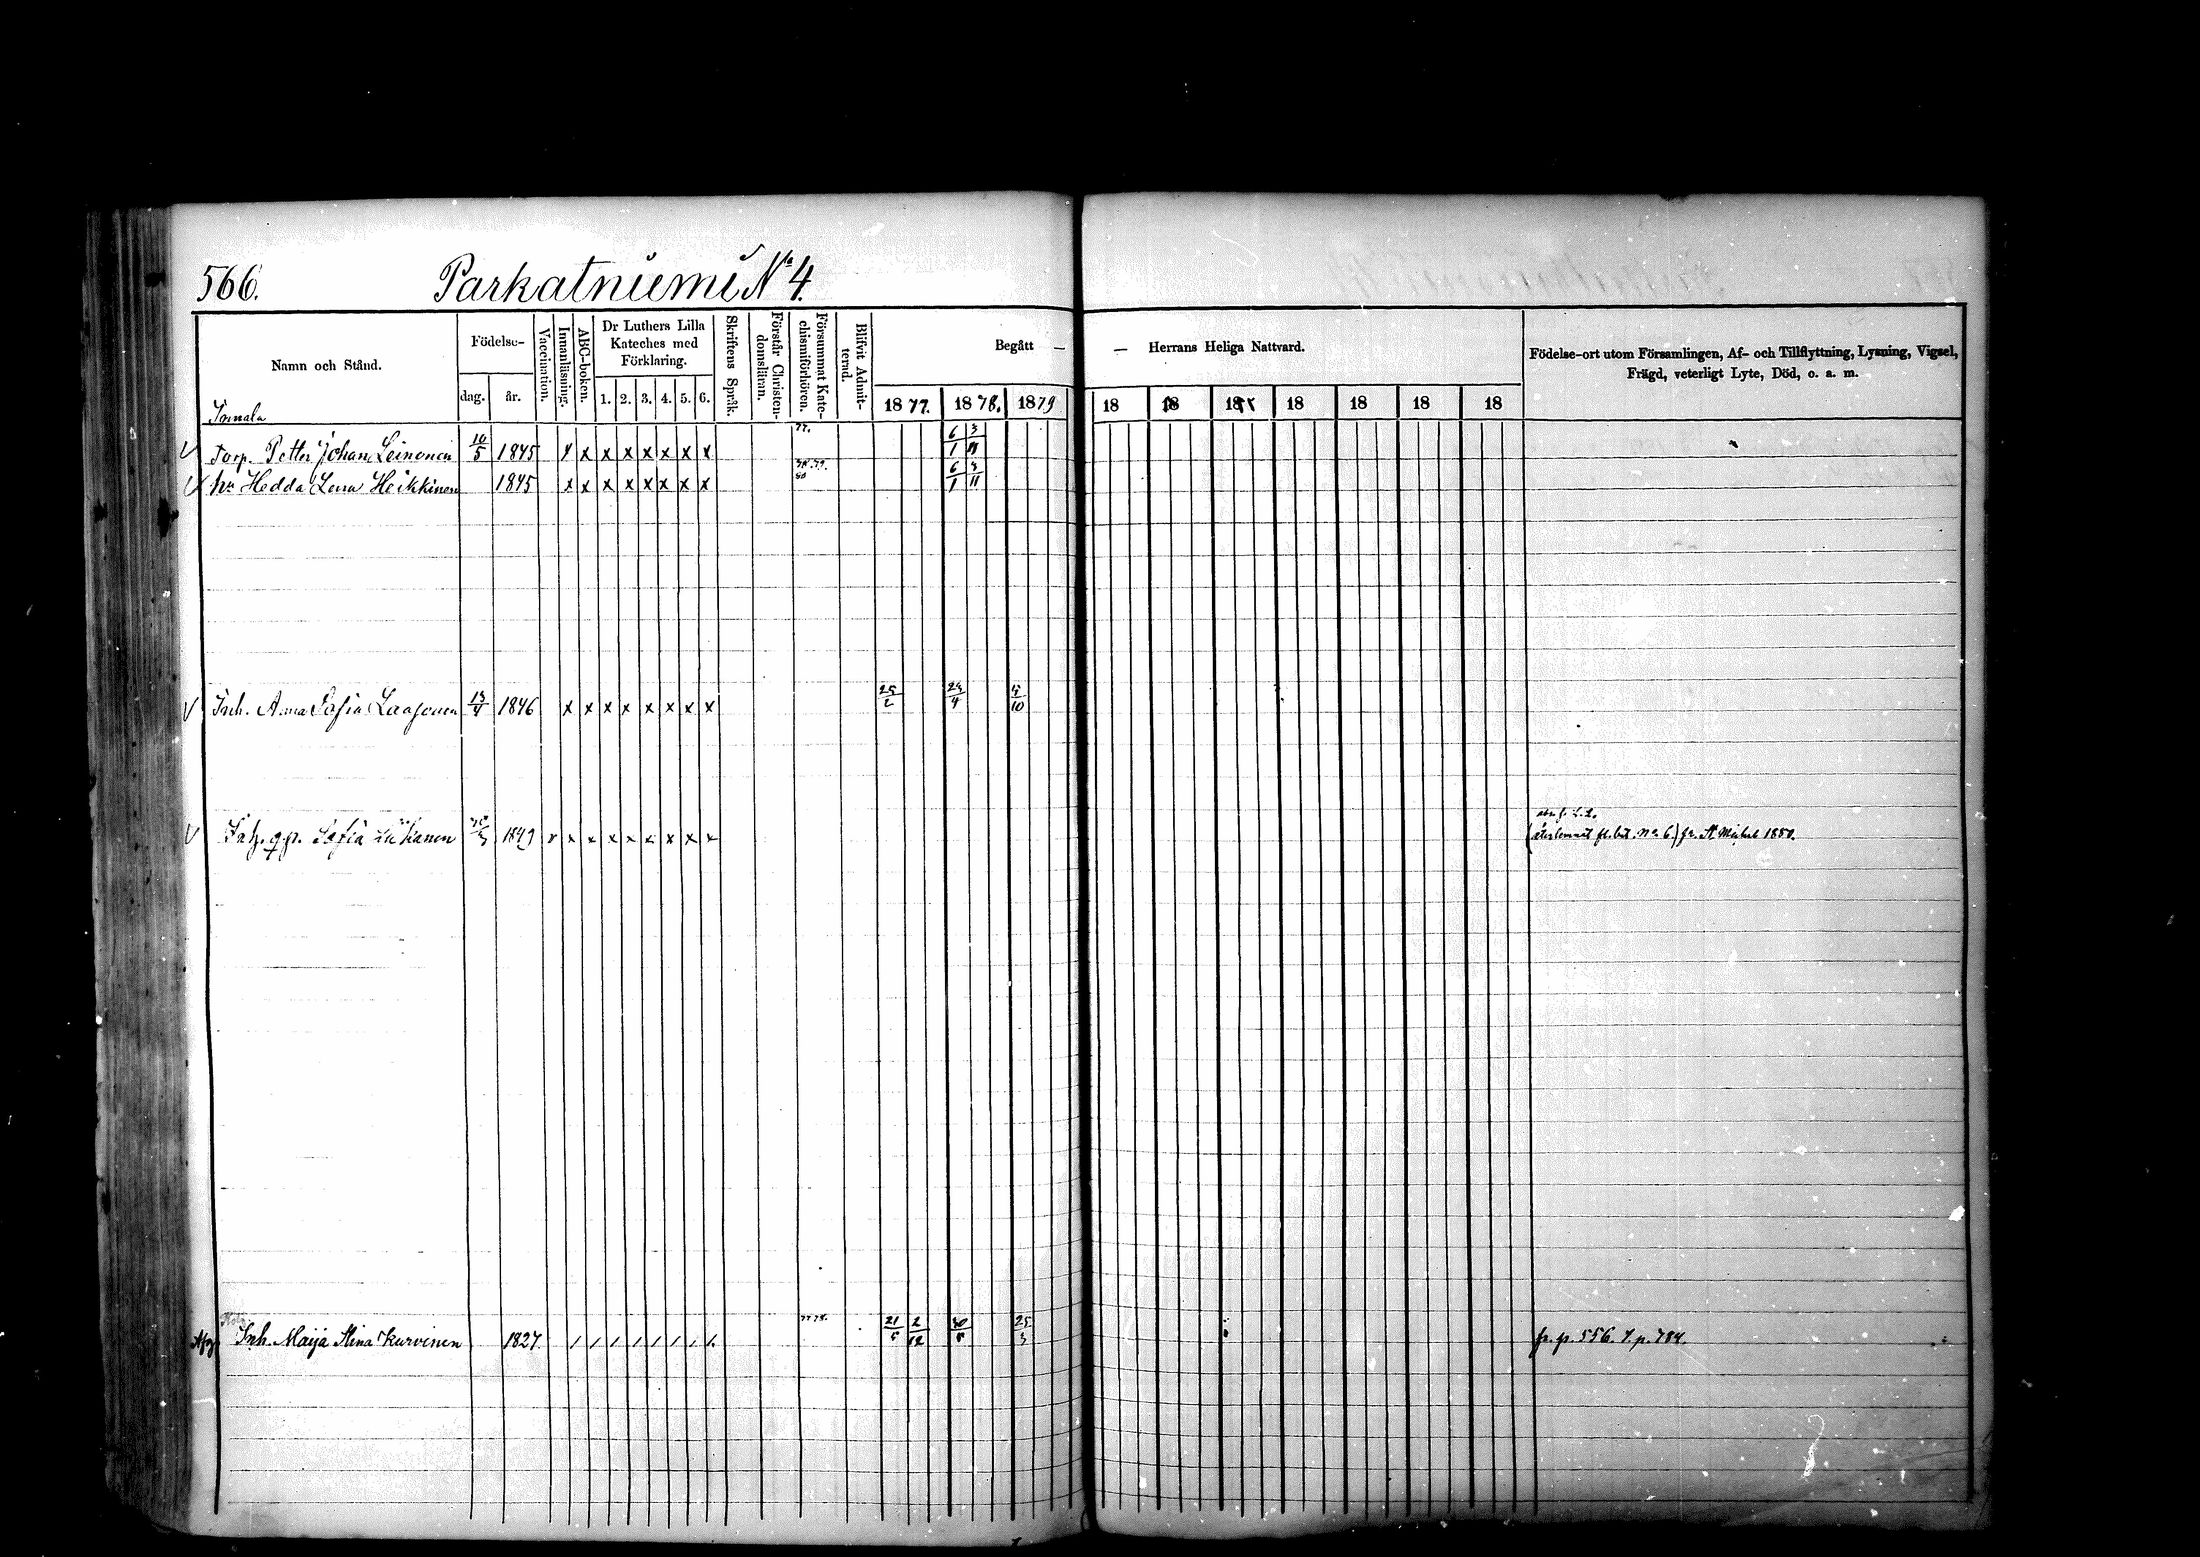 566. Parkatniemi No 4.
Namn och Stånd.
Födelse-
dag. år.
Vaccination.
Innanläsning.
ABC-boken.
Dr Luthers Lilla
Kateches med
Förklaring.
1. 2. 3. 4. 5. 6.
Skriftens Språk.
Förstår Christen-
domsläran.
Försummat Kate-
chismiförhören.
Blifvit Admit-
terad.
Begått — — Herrans Heliga Nattvard.
1877. 1878. 1879 18 18 18 18 18 18 18
Födelse-ort utom Församlingen, Af- och Tillflyttning, Lysning, Vigsel,
Frägd, veterligt Lyte, Död, o. a. m.
Torp. Petter Johan Leinonen 10/5 1845 x x x x x x x 77. 6/1 3/11
hu Hedda Lena Heikkinen 1845 x x x x x x x x 80 6/1 3/11
Inh. Anna Sofia Laasonen 13/4 1846 x x x x x x x x 25/2 24/4 5/10
Sofia 1849 x x x x x x x x
(återkommit No 6.) fr. St Michel 1880.
Inh. Maija Stina Kurvinen 1827 / / / / / / / / 77 78. 21/5 2/12 30/5 25/3 fr. p. 556. t. p. 784.